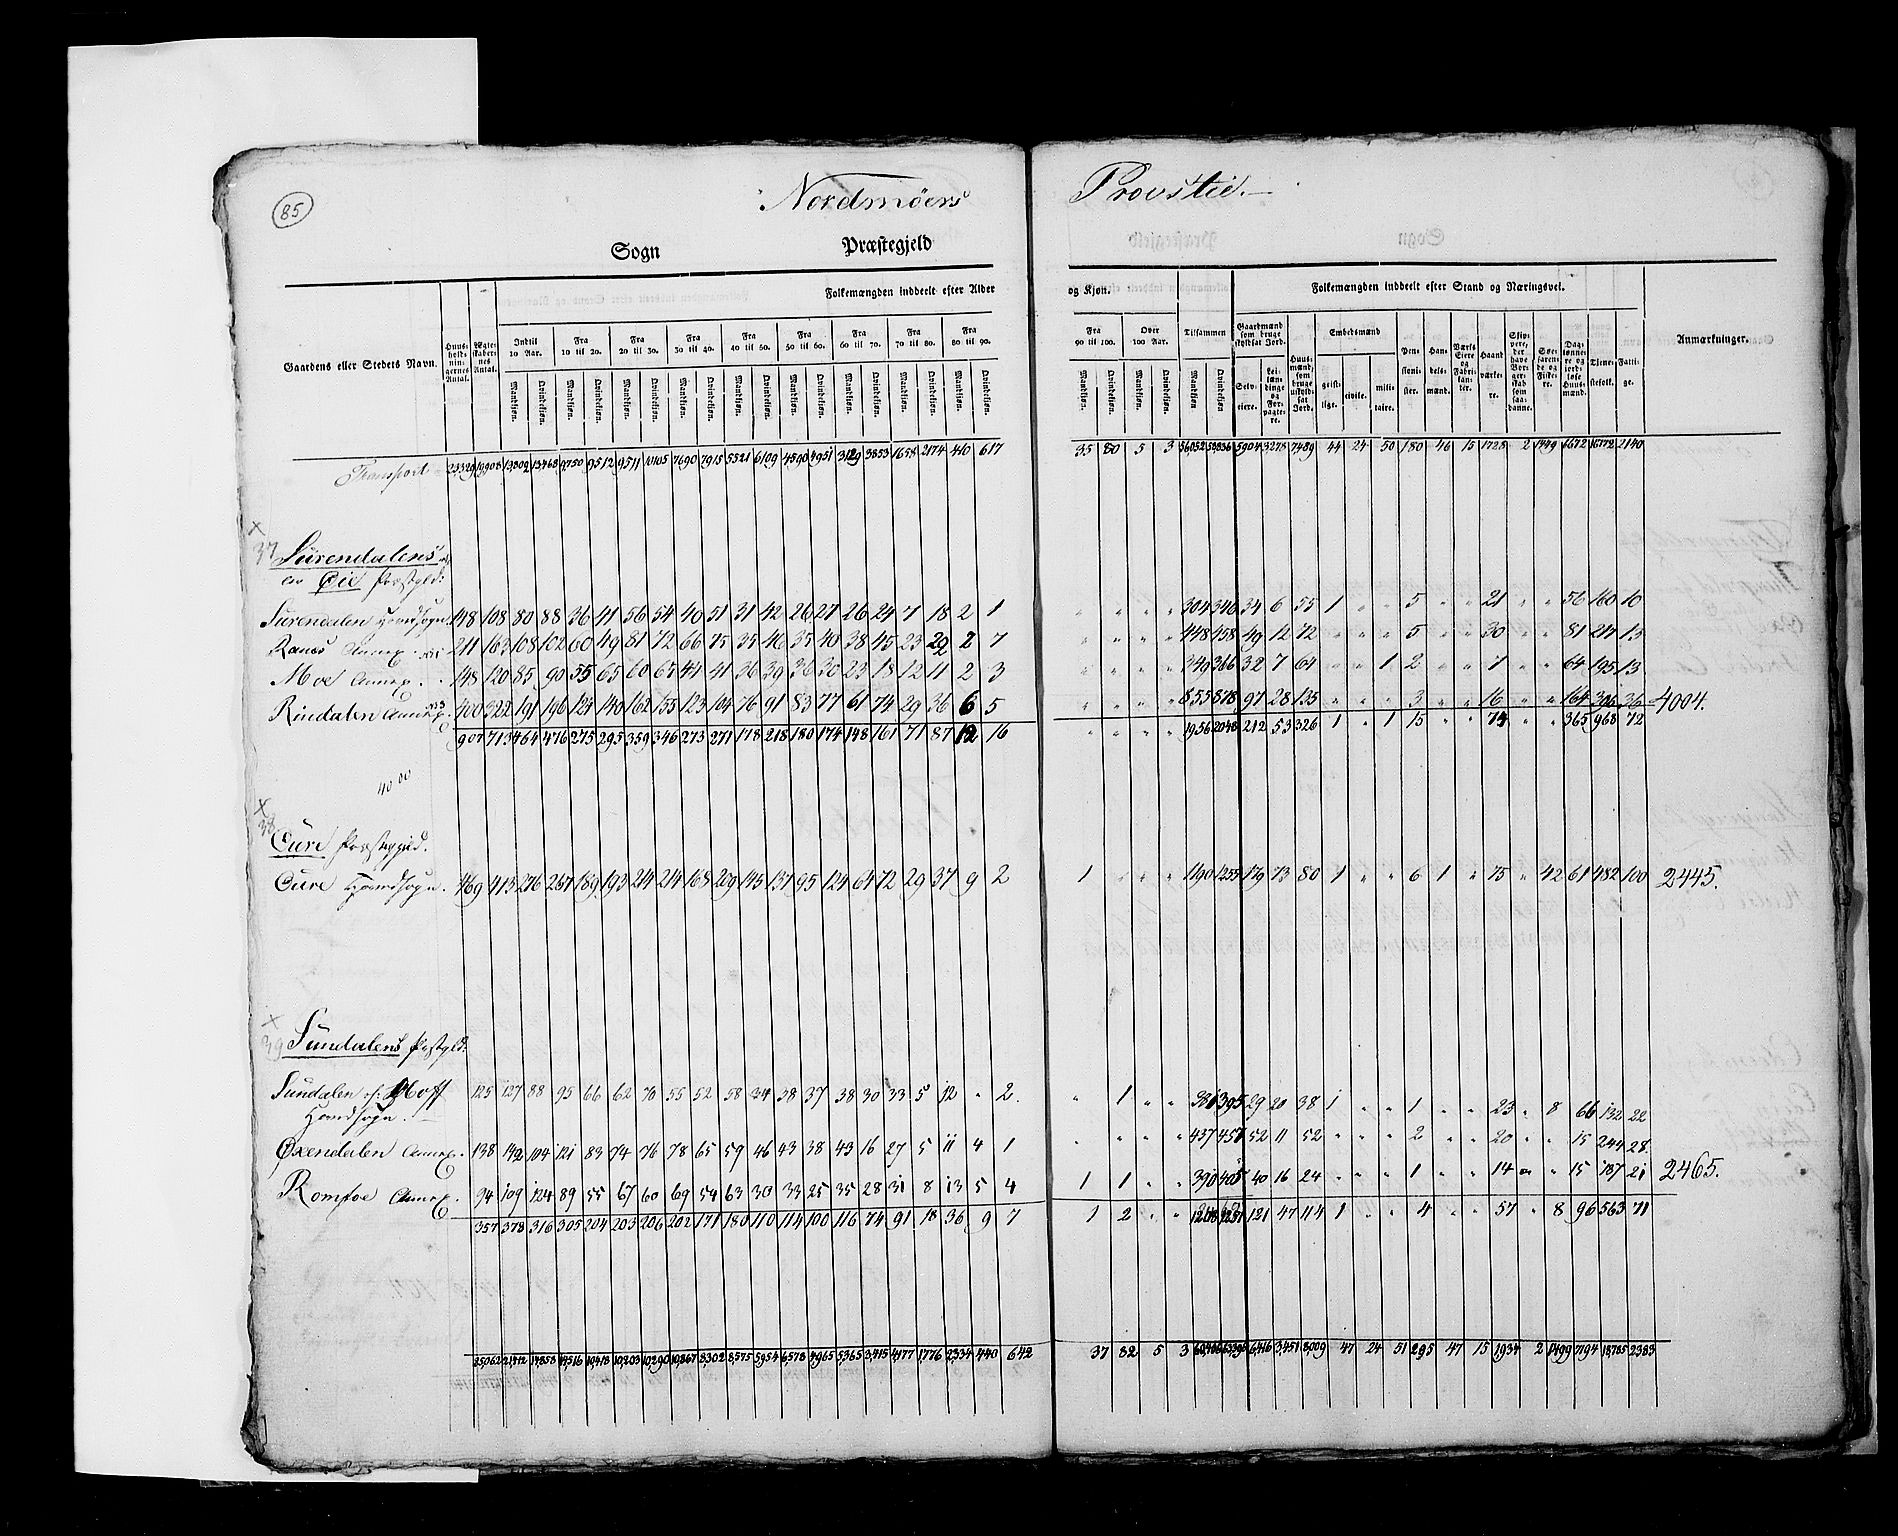 85
Nordmøers Provstie.
Sogn Præstegjeld
Folkemængden inddeelt efter Alder og Kjøn.
Folkemængden inddeelt efter Stand og Næringsvei.
Gaardens eller Stedets Navn.
Huusholdningernes Antal.
Ægteskabernes Antal.
Indtil 10 Aar. Fra 10 til 20. Fra 20 til 30. Fra 30 til 40. Fra 40 til 50. Fra 50 til 60. Fra 60 til 70. Fra 70 til 80. Fra 80 til 90. Fra 90 til 100. Over 100 Aar. Tilsammen
Mandkjøn. Qvindekjøn.
Gaardmænd som bruge skyldsat Jord.
Selveiere. Leilændinge og Forpagtere.
Huusmænd, som bruge uskyldsat Jord.
Embedsmænd
geistlige. civile. militaire.
Pensionister. Handelsmænd. Værks Eiere og Fabrikanter. Haandværkere.
Søefarende og Fiskere.
Dagslønnere og jordløse Huusmænd.
Tjenestefolk. Fattige.
Anmærkninger.
Transport 9750 9512 9511 10105 7690 7915 5521 6109 4590 4951 3853 1658 2174 440 617 35 80 5 3 5904 3278 7489 44 24 50 180 46 15 1728 2 1449 2140
37 Surendalens
Øie Præstgld:
Surendalen Hovedsogn 148 108 80 88 36 41 56 54 40 51 31 42 26 27 26 24 7 18 2 1 304 346 34 6 55 1 " " 5 " " 21 " " 56 160 10
Ranes Annex 211 163 108 102 60 49 81 72 66 75 35 46 35 40 38 45 23 29 2 7 448 458 49 12 72 " " " 5 " " 30 " " 81 217 13
Moe Annex. 148 120 85 90 55 65 60 65 44 41 36 39 36 30 23 18 12 11 2 3 349 366 32 7 64 " " 1 2 " " 7 " " 64 195 13
Rindalen Annex. 400 322 191 196 124 140 162 155 123 104 76 91 83 77 61 74 29 36 6 5 855 878 97 28 135 " " " 3 " " 16 " " 164 396 36 4004.
907 713 464 476 275 295 359 346 273 271 178 218 180 174 148 161 71 87 12 16 1956 2048 212 53 326 1 " 1 15 " " 74 " " 365 968 72
40 00
38
Eure Præstegjeld.
Eure Hovedsogn. 469 413 276 267 189 193 214 214 168 209 145 137 95 124 64 72 29 37 9 2 1 " " " 1190 1255 179 73 80 1 " " 6 1 " 75 " 42 61 482 100 2445.
39 Sundalens Præstgld:
Sundalen Hoff
Hovedsogn. 125 127 88 95 66 62 70 55 52 58 34 38 37 38 30 33 5 12 " 2. " 1 " " 381 395 29 20 38 1 " " 1 " " 23 " 8 66 132 22
Øxendalen Annex. 138 142 104 121 83 74 76 78 65 59 46 43 38 43 16 27 5 11 4 1 " " " " 437 457 52 11 52 " " " 2 " " 20 " " 15 244 28
Romfoe Annex. 94 109 124 89 55 67 60 69 54 63 30 33 25 35 28 31 8 13 5 4 1 1 " " 390 405 40 16 24 " " " 1 " " 14 " " 15 187 21 2465.
357 378 316 305 204 203 206 202 171 180 110 114 100 116 74 91 18 36 9 7 1 2 " " 1208 1257 121 47 114 1 " " 4 " " 57 " 8 96 563 71
25062 14858 14516 10418 10203 10290 10867 8302 8,575 5954 6,578 4965 5,365 3,415 4177 1,776 2334 440 642 37 82 5 3 6,416 3,451 8,009 47 24 51 205 47 15 1934 2 1499 7194 18,785 2383